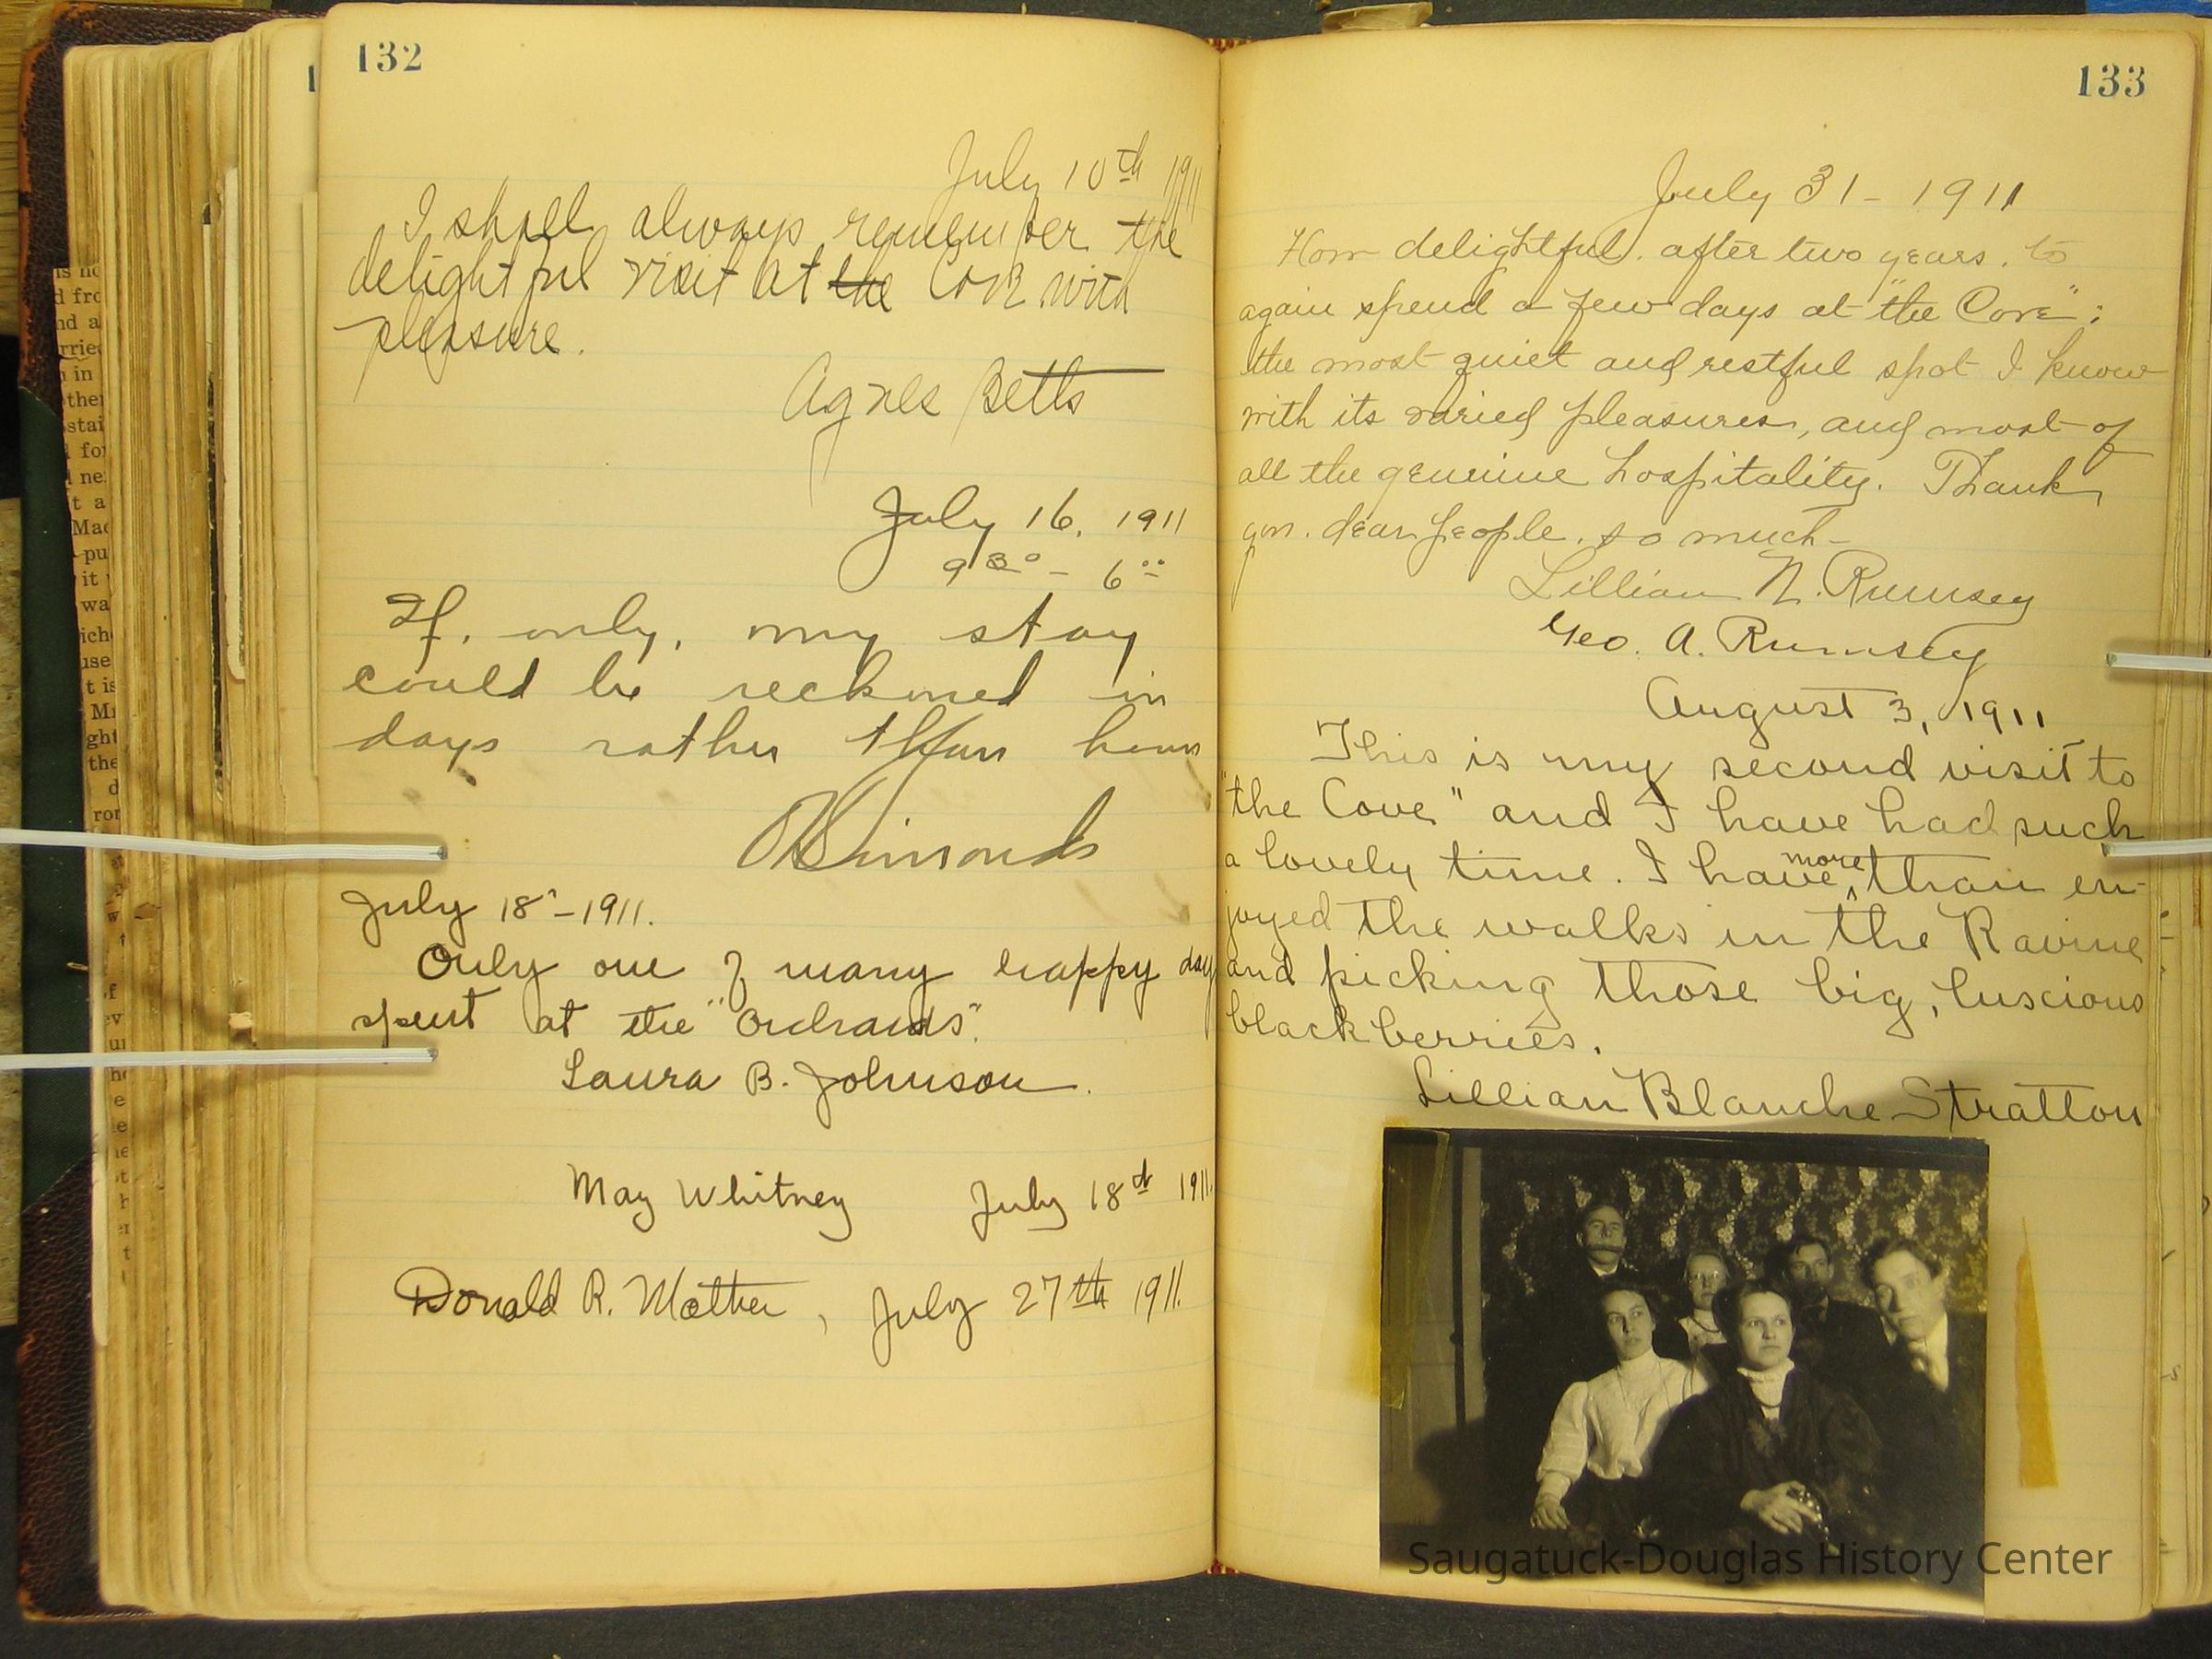 132
July 10th 1911
I shall always remember the
delightful visit at the Cove with
pleasure.
Agnes Betts
July 16, 1911
9 30 - 6 00
If, only, my stay
could be reckoned in
days rather than hours
Simonds
July 18 - 1911.
Only one of many happy days
spent at the "Orchards".
Laura B. Johnson.
May Whitney July 18th 1911.
Donald R. Mather, July 27th 1911.
133
July 31 - 1911
How delightful, after two years, to
again spend a few days at "the Cove";
the most quiet and restful spot I know
with its varied pleasures, and most of
all the genuine hospitality. Thank
you, dear people, so much-
Lillian N. Rumsey
Geo. A. Rumsey
August 3, 1911
This is my second visit to
"the Cove" and I have had such
a lovely time. I have more than en-
joyed the walks in the Ravine
and picking those big, luscious
blackberries.
Lillian Blanche Stratton
Saugatuck-Douglas History Center